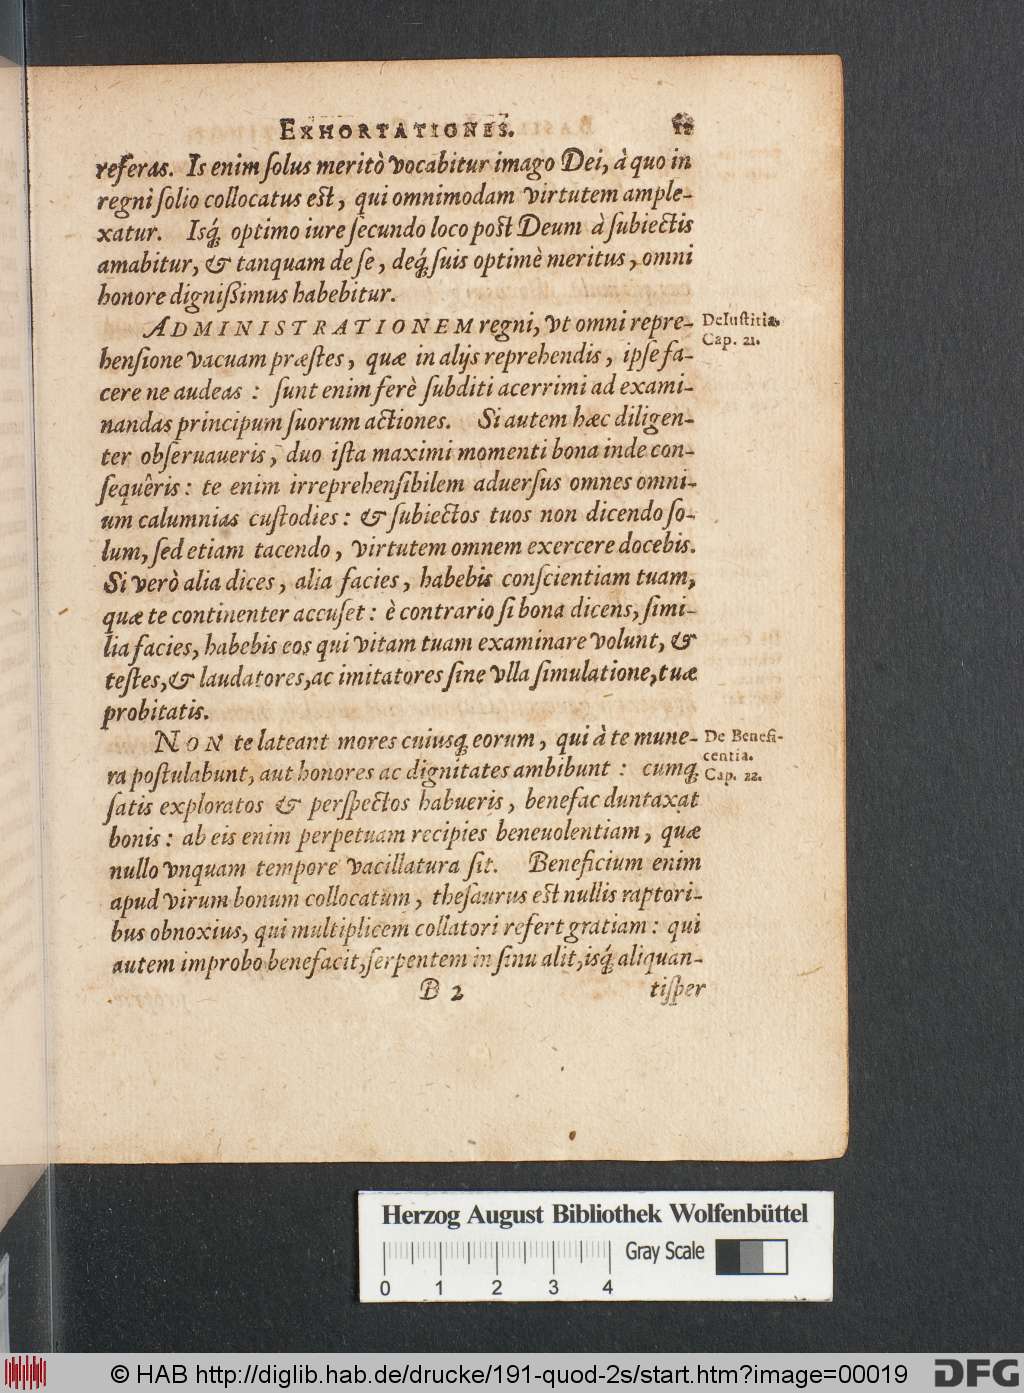 EXHORTATIONES.
referas. Is enim ſolus meritò vocabitur imago Dei, à quo in
regni ſolio collocatus eſt, qui omnimodam virtutem ample-
xatur. Isq́; optimo iure ſecundo loco poſt Deum à ſubiectis
amabitur, & tanquam de ſe, deq́; ſuis optimè meritus, omni
honore digniſſimus habebitur.
ADMINISTRATIONEM regni, vt omni repre-
De Iuſtitia.
Cap. 21.
henſione vacuam præſtes, quæ in alijs reprehendis, ipſe fa-
cere ne audeas : ſunt enim ferè ſubditi acerrimi ad exami-
nandas principum ſuorum actiones. Si autem hæc diligen-
ter obſeruaueris, duo iſta maximi momenti bona inde con-
ſequêris : te enim irreprehenſibilem aduerſus omnes omni-
um calumnias cuſtodies : & ſubiectos tuos non dicendo ſo-
lum, ſed etiam tacendo, virtutem omnem exercere docebis.
Si verò alia dices, alia facies, habebis conſcientiam tuam,
quæ te continenter accuſet : è contrario ſi bona dicens, ſimi-
lia facies, habebis eos qui vitam tuam examinare volunt, &
teſtes, & laudatores, ac imitatores ſine vlla ſimulatione, tuæ
probitatis.
NON te lateant mores cuiusq; eorum, qui à te mune-
De Benefi-
centia.
Cap. 22.
ra poſtulabunt, aut honores ac dignitates ambibunt : cumq;
ſatis exploratos & perſpectos habueris, benefac duntaxat
bonis : ab eis enim perpetuam recipies beneuolentiam, quæ
nullo vnquam tempore vacillatura ſit. Beneficium enim
apud virum bonum collocatum, theſaurus eſt nullis raptori-
bus obnoxius, qui multiplicem collatori refert gratiam : qui
autem improbo benefacit, ſerpentem in ſinu alit, isq́; aliquan-
B 2
tiſper
Herzog August Bibliothek Wolfenbüttel
Gray Scale
0 1 2 3 4
© HAB http://diglib.hab.de/drucke/191-quod-2s/start.htm?image=00019
DFG